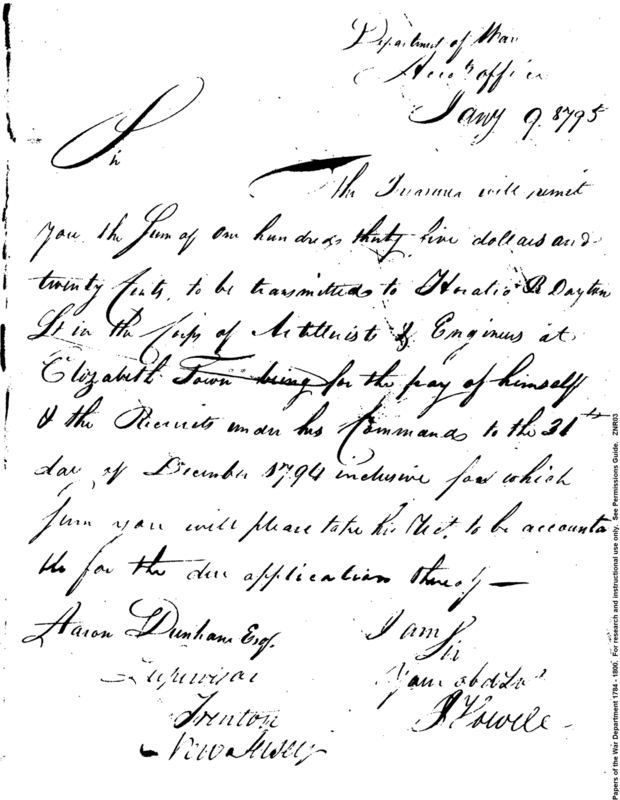 Department of War
Accots office
Jany 9. 1795
Sir
The Treasurer will remit
you the Sum of one hundred thirty five dollars and
twenty Cents, to be transmitted to Horatio R Dayton
Lt in the Corps of Artillerists & Engineers at
Elizabeth Town being for the pay of himself
& the Recruits under his Command to the 31st
day of December 1794 inclusive for which
sum you will please take his Rect. to be accounta
ble for the due application thereof —
Aaron Dunham Esq.
Supervisor
Trenton
New Jersey
I am
Sir
Your obd Svt
J Howell
Papers of the War Department 1784 - 1800. For research and instructional use only. See Permissions Guide. ZNR03